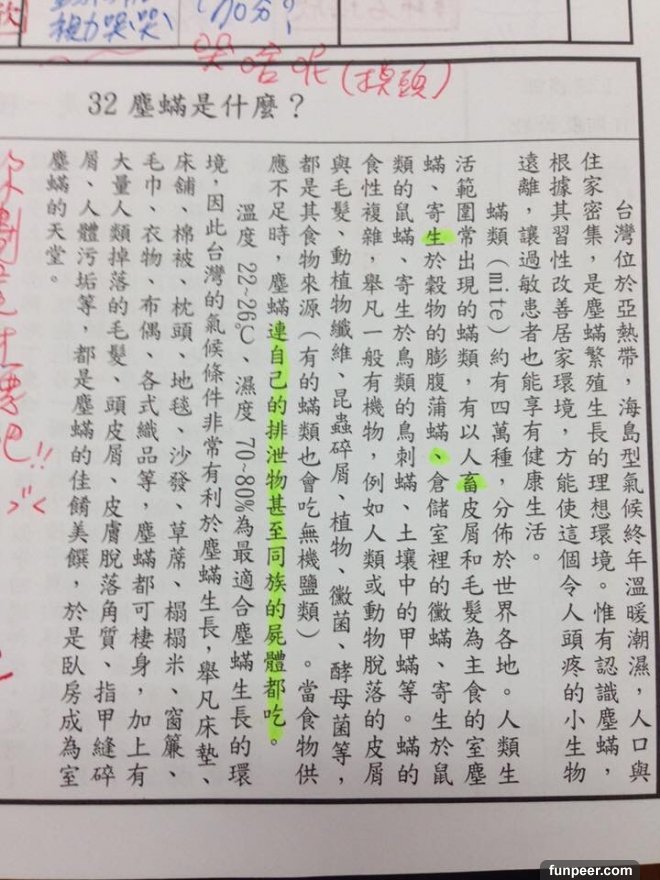 視力哭哭
哭啥呢(摸頭)
32 塵蟎是什麼？
台灣位於亞熱帶，海島型氣候終年溫暖潮濕，人口與
住家密集，是塵蟎繁殖生長的理想環境。惟有認識塵蟎，
根據其習性改善居家環境，方能使這個令人頭疼的小生物
遠離，讓過敏患者也能享有健康生活。
蟎類（mite）約有四萬種，分佈於世界各地。人類生
活範圍常出現的蟎類，有以人畜皮屑和毛髮為主食的室塵
蟎、寄生於穀物的膨腹蒲蟎、倉儲室裡的黴蟎、寄生於鼠
類的鼠蟎、寄生於鳥類的鳥刺蟎、土壤中的甲蟎等。蟎的
食性複雜，舉凡一般有機物，例如人類或動物脫落的皮屑
與毛髮、動植物纖維、昆蟲碎屑、植物、黴菌、酵母菌等，
都是其食物來源（有的蟎類也會吃無機鹽類）。當食物供
應不足時，塵蟎連自己的排泄物甚至同族的屍體都吃。
溫度 22~26℃、濕度 70~80%為最適合塵蟎生長的環
境，因此台灣的氣候條件非常有利於塵蟎生長，舉凡床墊、
床舖、棉被、枕頭、地毯、沙發、草蓆、榻榻米、窗簾、
毛巾、衣物、布偶、各式織品等，塵蟎都可棲身，加上有
大量人類掉落的毛髮、頭皮屑、皮膚脫落角質、指甲縫碎
屑、人體污垢等，都是塵蟎的佳餚美饌，於是臥房成為室
塵蟎的天堂。
funpeer.com